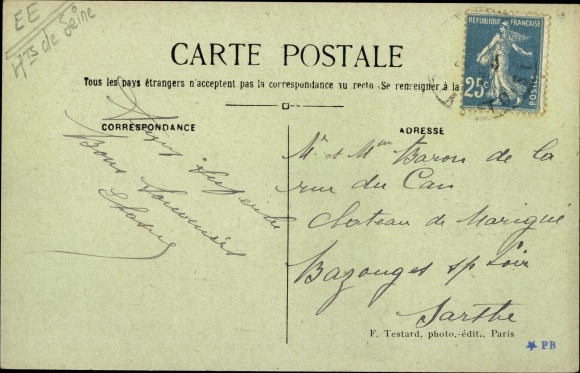 EE
Hts de Seine
RÉPUBLIQUE FRANÇAISE
25c
POSTES
CARTE POSTALE
Tous les pays étrangers n'acceptent pas la correspondance au recto (Se renseigner à la
CORRESPONDANCE
ADRESSE
Bons Souvenirs
Mr et Mme Baron de la
rue du Can
chateau de Marigné
Bazouges sp Loir
Sarthe
F. Testard, photo.-édit., Paris
PB